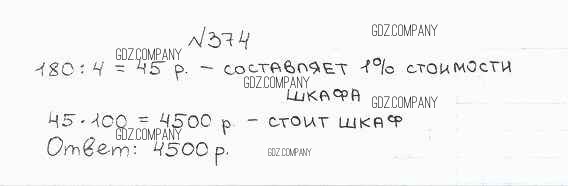 №374
GDZ.COMPANY
GDZ.COMPANY
180 : 4 = 45 р. – составляет 1% стоимости
GDZ.COMPANY
шкафа
GDZ.COMPANY
45 · 100 = 4500 р – стоит шкаф
GDZ.COMPANY
Ответ: 4500 р.
GDZ.COMPANY